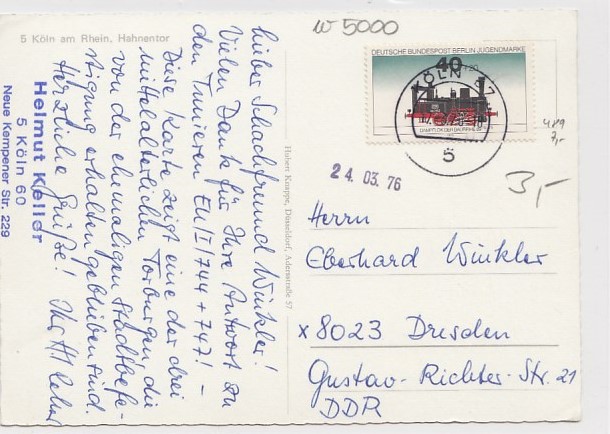 5 Köln am Rhein, Hahnentor
w 5000
DEUTSCHE BUNDESPOST BERLIN JUGENDMARKE
40
KÖLN
5
24. 03. 76
3,-
Lieber Schachfreund Winkler!
Vielen Dank für Ihre Antwort zu
den Turnieren EU/I 744 + 747! –
Diese Karte zeigt eine der drei
mittelalterlichen Torburgen, die
von der ehemaligen Stadtbefe-
stigung erhalten geblieben sind.
Herzliche Grüße! Ihr H Keller
Helmut Keller
5 Köln 60
Neue Kempener Str. 229
Hubert Knappe, Düsseldorf, Adersstraße 57
Herrn
Eberhard Winkler
x 8023 Dresden
Gustav-Richter-Str. 21
DDR